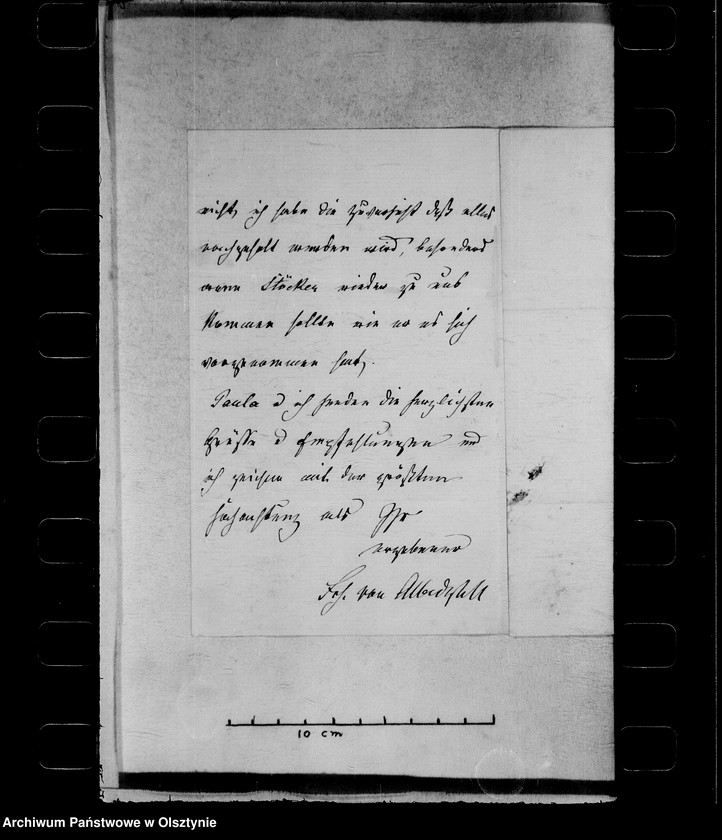 nicht, ich habe die Zuversicht daß alles
nachgeholt werden wird, besonders
wenn Stöcker wieder zu uns
kommen sollte wie er es sich
vorgenommen hat.
Paula & ich senden die herzlichsten
Grüße & Empfehlungen und
ich zeichne mit der größten
Hochachtung als Ihr
ergebener
Joh. von Albedyhll
10 cm
Archiwum Państwowe w Olsztynie